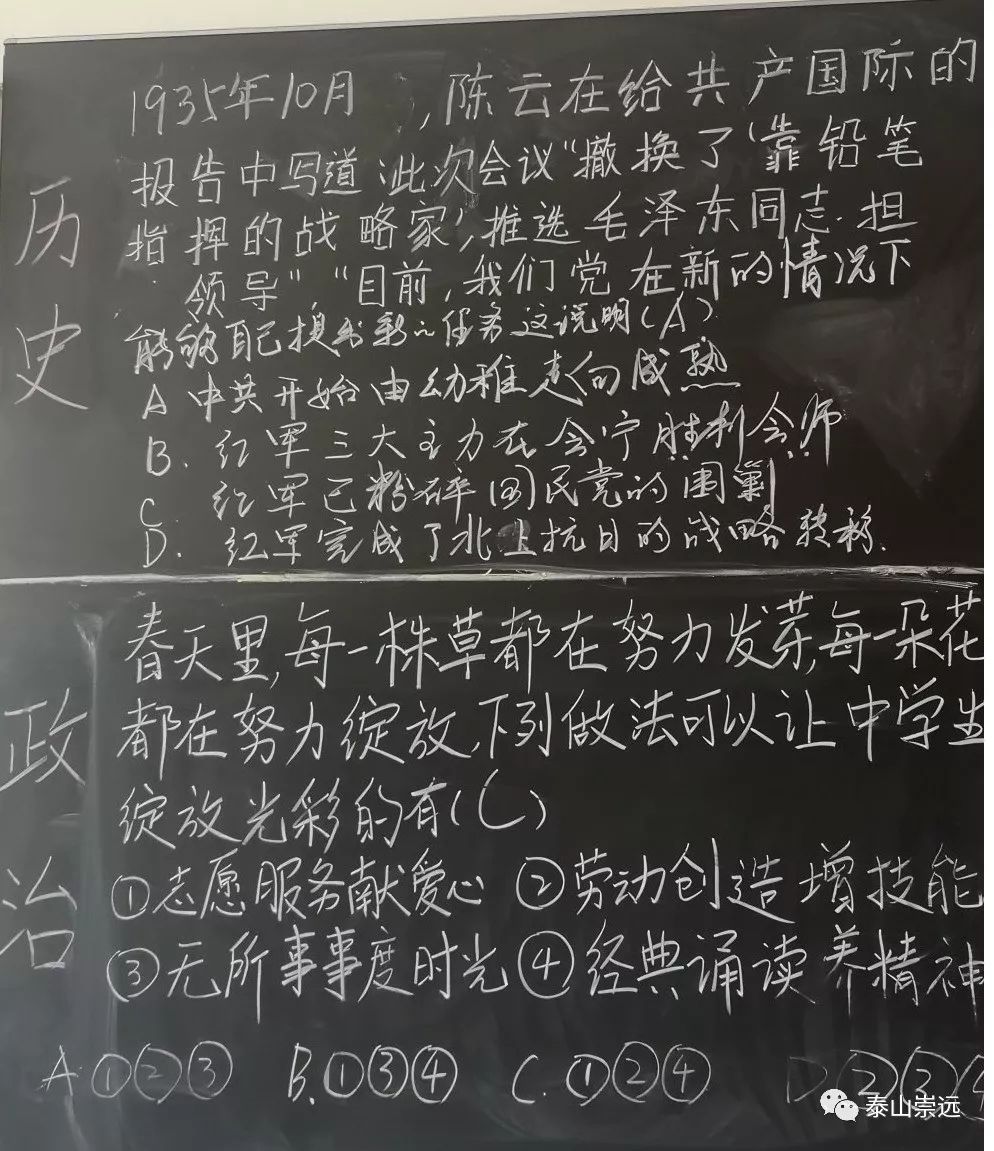 历史
1935年10月,陈云在给共产国际的
报告中写道:此次会议“撤换了‘靠铅笔
指挥的战略家’,推选毛泽东同志担
领导”“目前,我们党在新的情况下
能够自己提出新的任务这说明(A)
A 中共开始由幼稚走向成熟
B. 红军三大主力在会宁胜利会师
C. 红军已粉碎国民党的围剿
D. 红军完成了北上抗日的战略转移.
政治
春天里,每一株草都在努力发芽,每一朵花
都在努力绽放,下列做法可以让中学生
绽放光彩的有(C)
①志愿服务献爱心 ②劳动创造增技能
③无所事事度时光 ④经典诵读养精神
A.①②③ B.①③④ C.①②④ D.②③④
泰山崇远